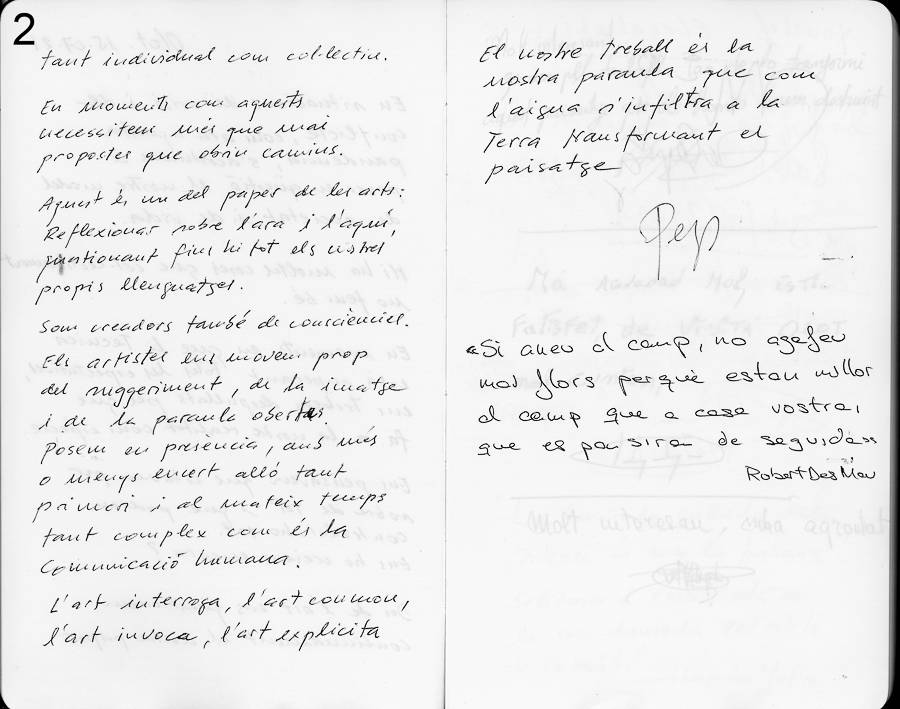 2
tant individual com col·lectiu.
En moments com aquests
necessitem més que mai
propostes que obrin camins.
Aquest és un del paper de les arts:
Reflexionar sobre l'ara i l'aquí,
qüestionant fins hi tot els nostres
propis llenguatges.
Som creadors també de consciències.
Els artistes ens movem prop
del suggeriment, de la imatge
i de la paraula obertes
Posem en presència, amb més
o menys encert allò tant
primari i al mateix temps
tant complex com és la
Comunicació humana.
L'art interroga, l'art commou,
l'art invoca, l'art explicita
El nostre treball és la
nostra paraula que com
l'aigua s'infiltra a la
Terra transformant el
paisatge
Pep
«Si aneu al camp, no agafeu
mai flors perquè estan millor
al camp que a casa vostra,
que es pansiran de seguida»
Robert Des Mau